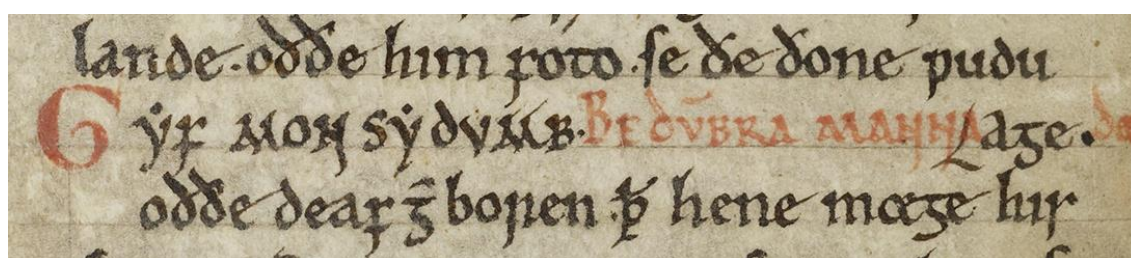 lande. oððe him foto. se ðe ðone ƿudu
Gẏf MON Sẏ DVMB. BE DV̄BRA MANNA age.
oððe deaf ḡboren. ꝥ hene mæge hiſ